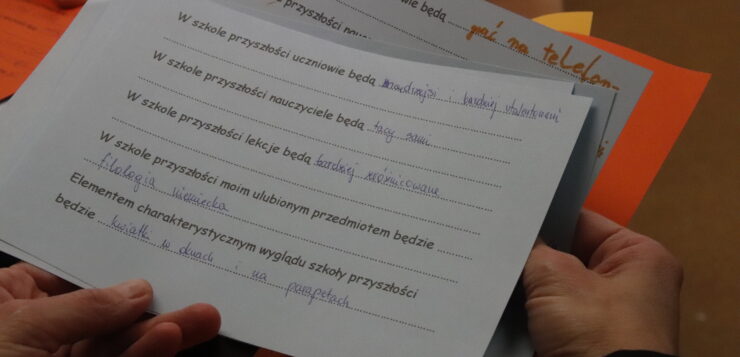 szkole przyszłości uczniowie będą
przyszłości nau
gać na telefon-
W szkole przyszłości uczniowie będą mądrzejsi i bardziej utalentowani
W szkole przyszłości nauczyciele będą tacy sami
W szkole przyszłości lekcje będą bardziej zróżnicowane
W szkole przyszłości moim ulubionym przedmiotem będzie
filologia niemiecka
Elementem charakterystycznym wyglądu szkoły przyszłości
będzie kwiatki w oknach i na parapetach